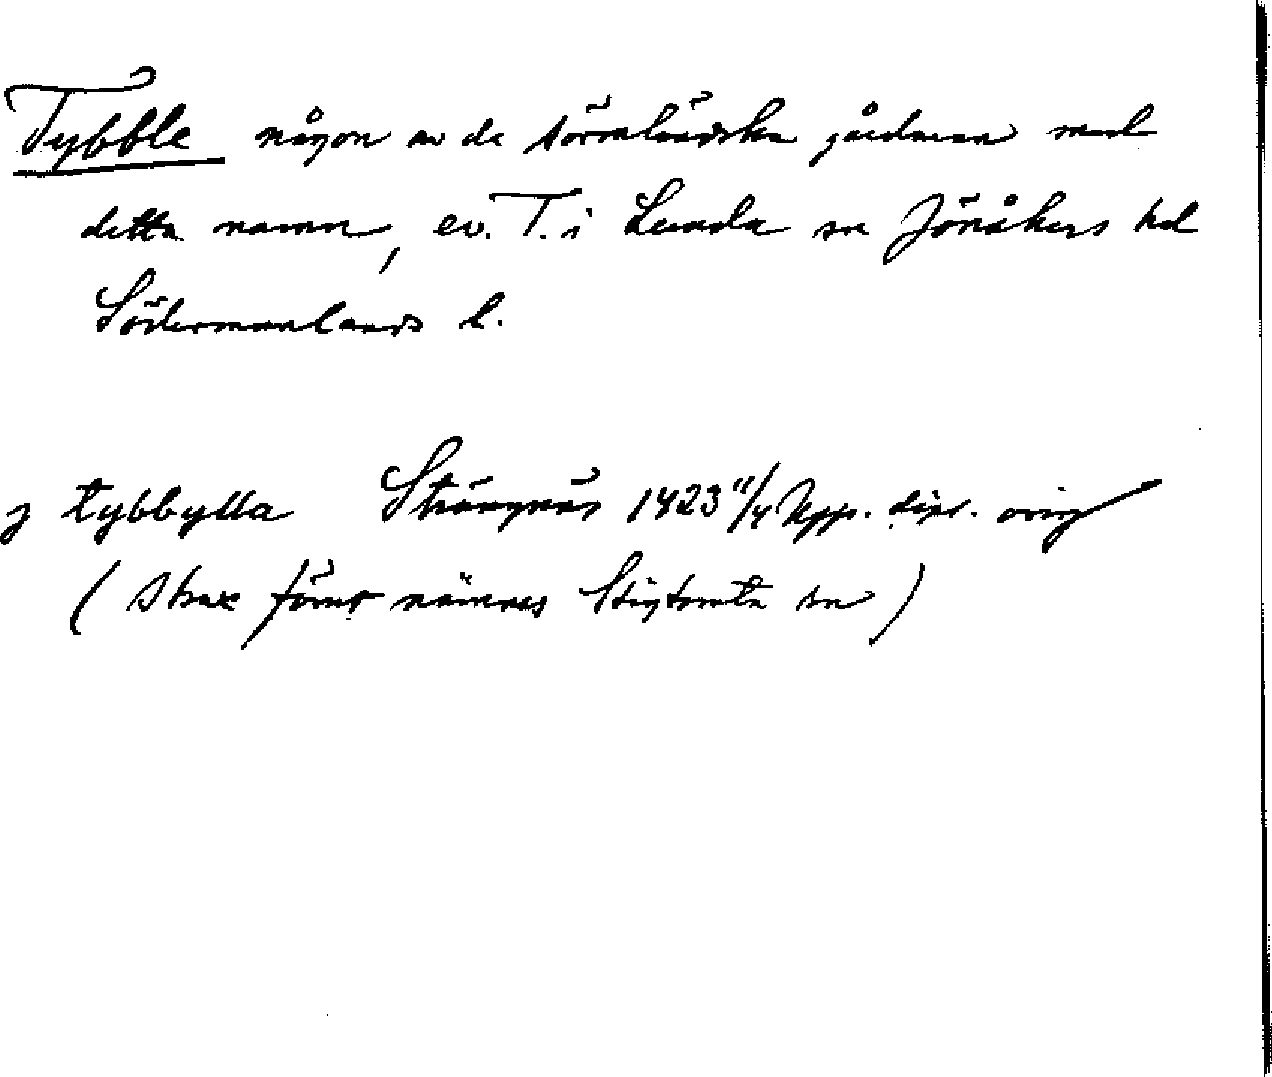 Tybble någon av de sörmländska gårdarna med
detta namn, ev. T. i Lunda sn Jönåkers hd
Södermanlands l.
j tybbylla Strängnäs 1423 11/4 Upp. dipl. orig
(strax förut nämnes Stigtomta sn)